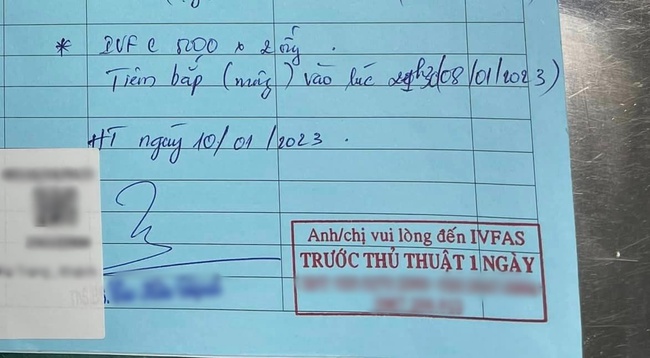 * IVF C 5000 x 2 ống.
Tiêm bắp (mông) vào lúc (08/01/2023)
HT ngày 10/01/2023.
Anh/chị vui lòng đến IVFAS
TRƯỚC THỦ THUẬT 1 NGÀY